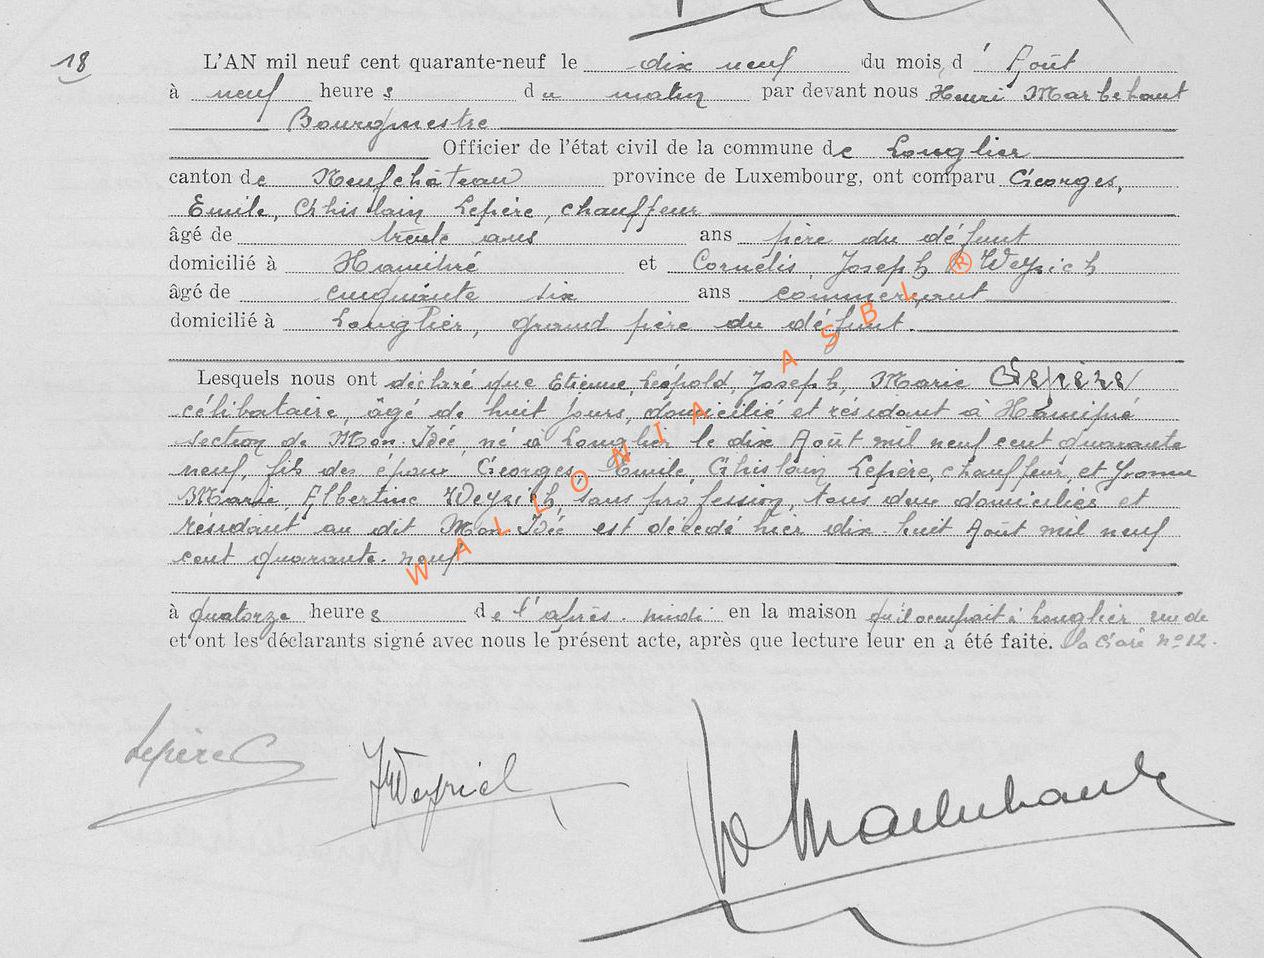 18
L'AN mil neuf cent quarante-neuf le dix neuf du mois d' Août
à neuf heures du matin par devant nous Henri Marbehant
Bourgmestre
Officier de l'état civil de la commune de Longlier
canton de Neufchâteau province de Luxembourg, ont comparu Georges,
Emile, Ghislain Lepère, chauffeur
âgé de trente ans ans père du défunt
domicilié à Hamipré et Cornélis, Joseph Weyrich
âgé de cinquante six ans commerçant
domicilié à Longlier, grand père du défunt.
Lesquels nous ont déclaré que Etienne, Léopold, Joseph, Marie Lepère
célibataire, âgé de huit jours, domicilié et résidant à Hamipré
section de Mon Idée, né à Longlier le dix Août mil neuf cent quarante
neuf, fils des époux Georges, Emile, Ghislain Lepère, chauffeur, et Yvonne
Marie, Albertine Weyrich, sans profession, tous deux domiciliés et
résidant au dit Mon Idée est décédé hier dix-huit Août mil neuf
cent quarante-neuf
à quatorze heures de l'après-midi en la maison qu'il occupait à Longlier rue de
et ont les déclarants signé avec nous le présent acte, après que lecture leur en a été faite. la Gare n° 12.
Lepère G
J Weyrich
H Marbehant
WALLONIA ASBL ®